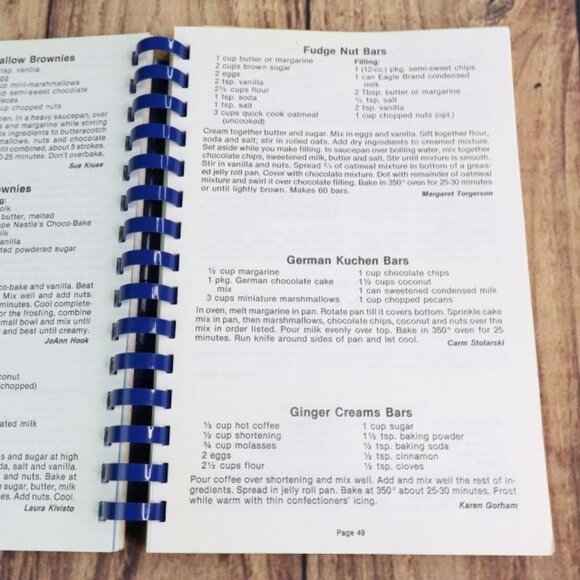 allow Brownies
tsp. vanilla
gg
up mini-marshmallows
up semi-sweet chocolate
ieces
cup chopped nuts
pan. In a heavy saucepan, over
s and margarine while stirring
ix ingredients to butterscotch
mallows, nuts and chocolate
until combined, about 5 strokes.
0-25 minutes. Don't overbake,
Sue Kruse
wnies
ng:
olk
butter, melted
ope Nestle's Choco-Bake
milk
anilla
ited powdered sugar
co-bake and vanilla. Beat
Mix well and add nuts.
minutes. Cool complete-
or the frosting, combine
mall bowl and mix until
and beat until creamy.
JoAnn Hook
conut
chopped)
ated milk
s and sugar at high
da, salt and vanilla.
and nuts. Bake at
sugar, butter, milk
es. Add nuts. Cool.
Laura Kivisto
Fudge Nut Bars
1 cup butter or margarine
2 cups brown sugar
2 eggs
2 tsp. vanilla
2½ cups flour
1 tsp. soda
1 tsp. salt
3 cups quick cook oatmeal
(uncooked)
Filling:
1 (12-oz.) pkg. semi-sweet chips
1 can Eagle Brand condensed
milk
2 Tbsp. butter or margarine
½ tsp. salt
2 tsp. vanilla
1 cup chopped nuts (opt.)
Cream together butter and sugar. Mix in eggs and vanilla. Sift together flour,
soda and salt; stir in rolled oats. Add dry ingredients to creamed mixture.
Set aside while you make filling. In saucepan over boiling water, mix together
chocolate chips, sweetened milk, butter and salt. Stir until mixture is smooth.
Stir in vanilla and nuts. Spread ⅔ of oatmeal mixture in bottom of a greas-
ed jelly roll pan. Cover with chocolate mixture. Dot with remainder of oatmeal
mixture and swirl it over chocolate filling. Bake in 350° oven for 25-30 minutes
or until lightly brown. Makes 60 bars.
Margaret Torgerson
German Kuchen Bars
½ cup margarine
1 pkg. German chocolate cake
mix
3 cups miniature marshmallows
1 cup chocolate chips
1½ cups coconut
1 can sweetened condensed milk
1 cup chopped pecans
In oven, melt margarine in pan. Rotate pan till it covers bottom. Sprinkle cake
mix in pan, then marshmallows, chocolate chips, coconut and nuts over the
mix in order listed. Pour milk evenly over top. Bake in 350° oven for 25
minutes. Run knife around sides of pan and let cool.
Carm Stolarski
Ginger Creams Bars
½ cup hot coffee
½ cup shortening
¾ cup molasses
2 eggs
2½ cups flour
1 cup sugar
1½ tsp. baking powder
½ tsp. baking soda
½ tsp. cinnamon
½ tsp. cloves
Pour coffee over shortening and mix well. Add and mix well the rest of in-
gredients. Spread in jelly roll pan. Bake at 350° about 25-30 minutes. Frost
while warm with thin confectioners' icing.
Karen Gorham
Page 49